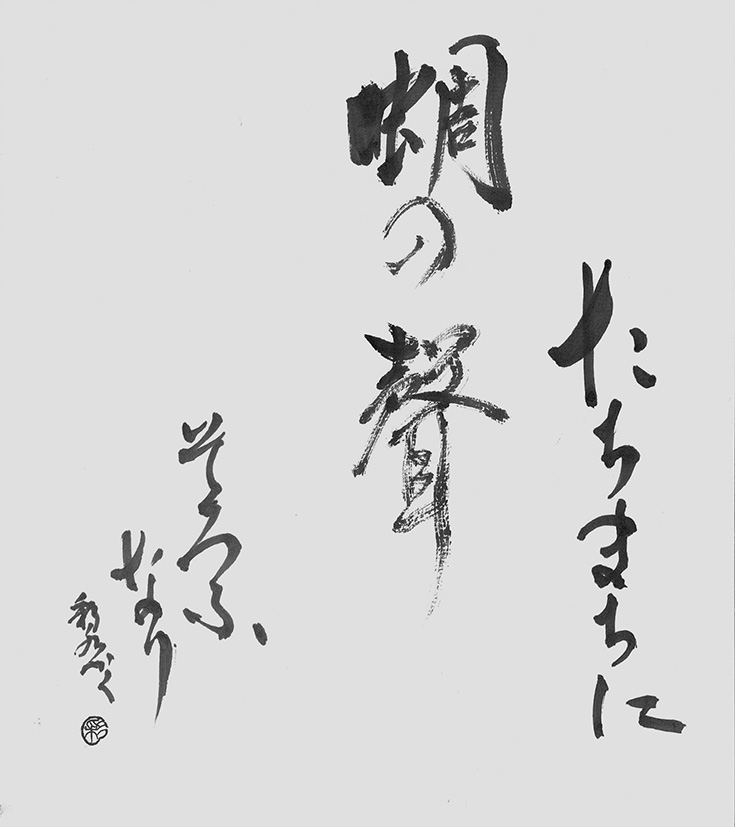 たちまちに
蜩の聲
そろふ
なり